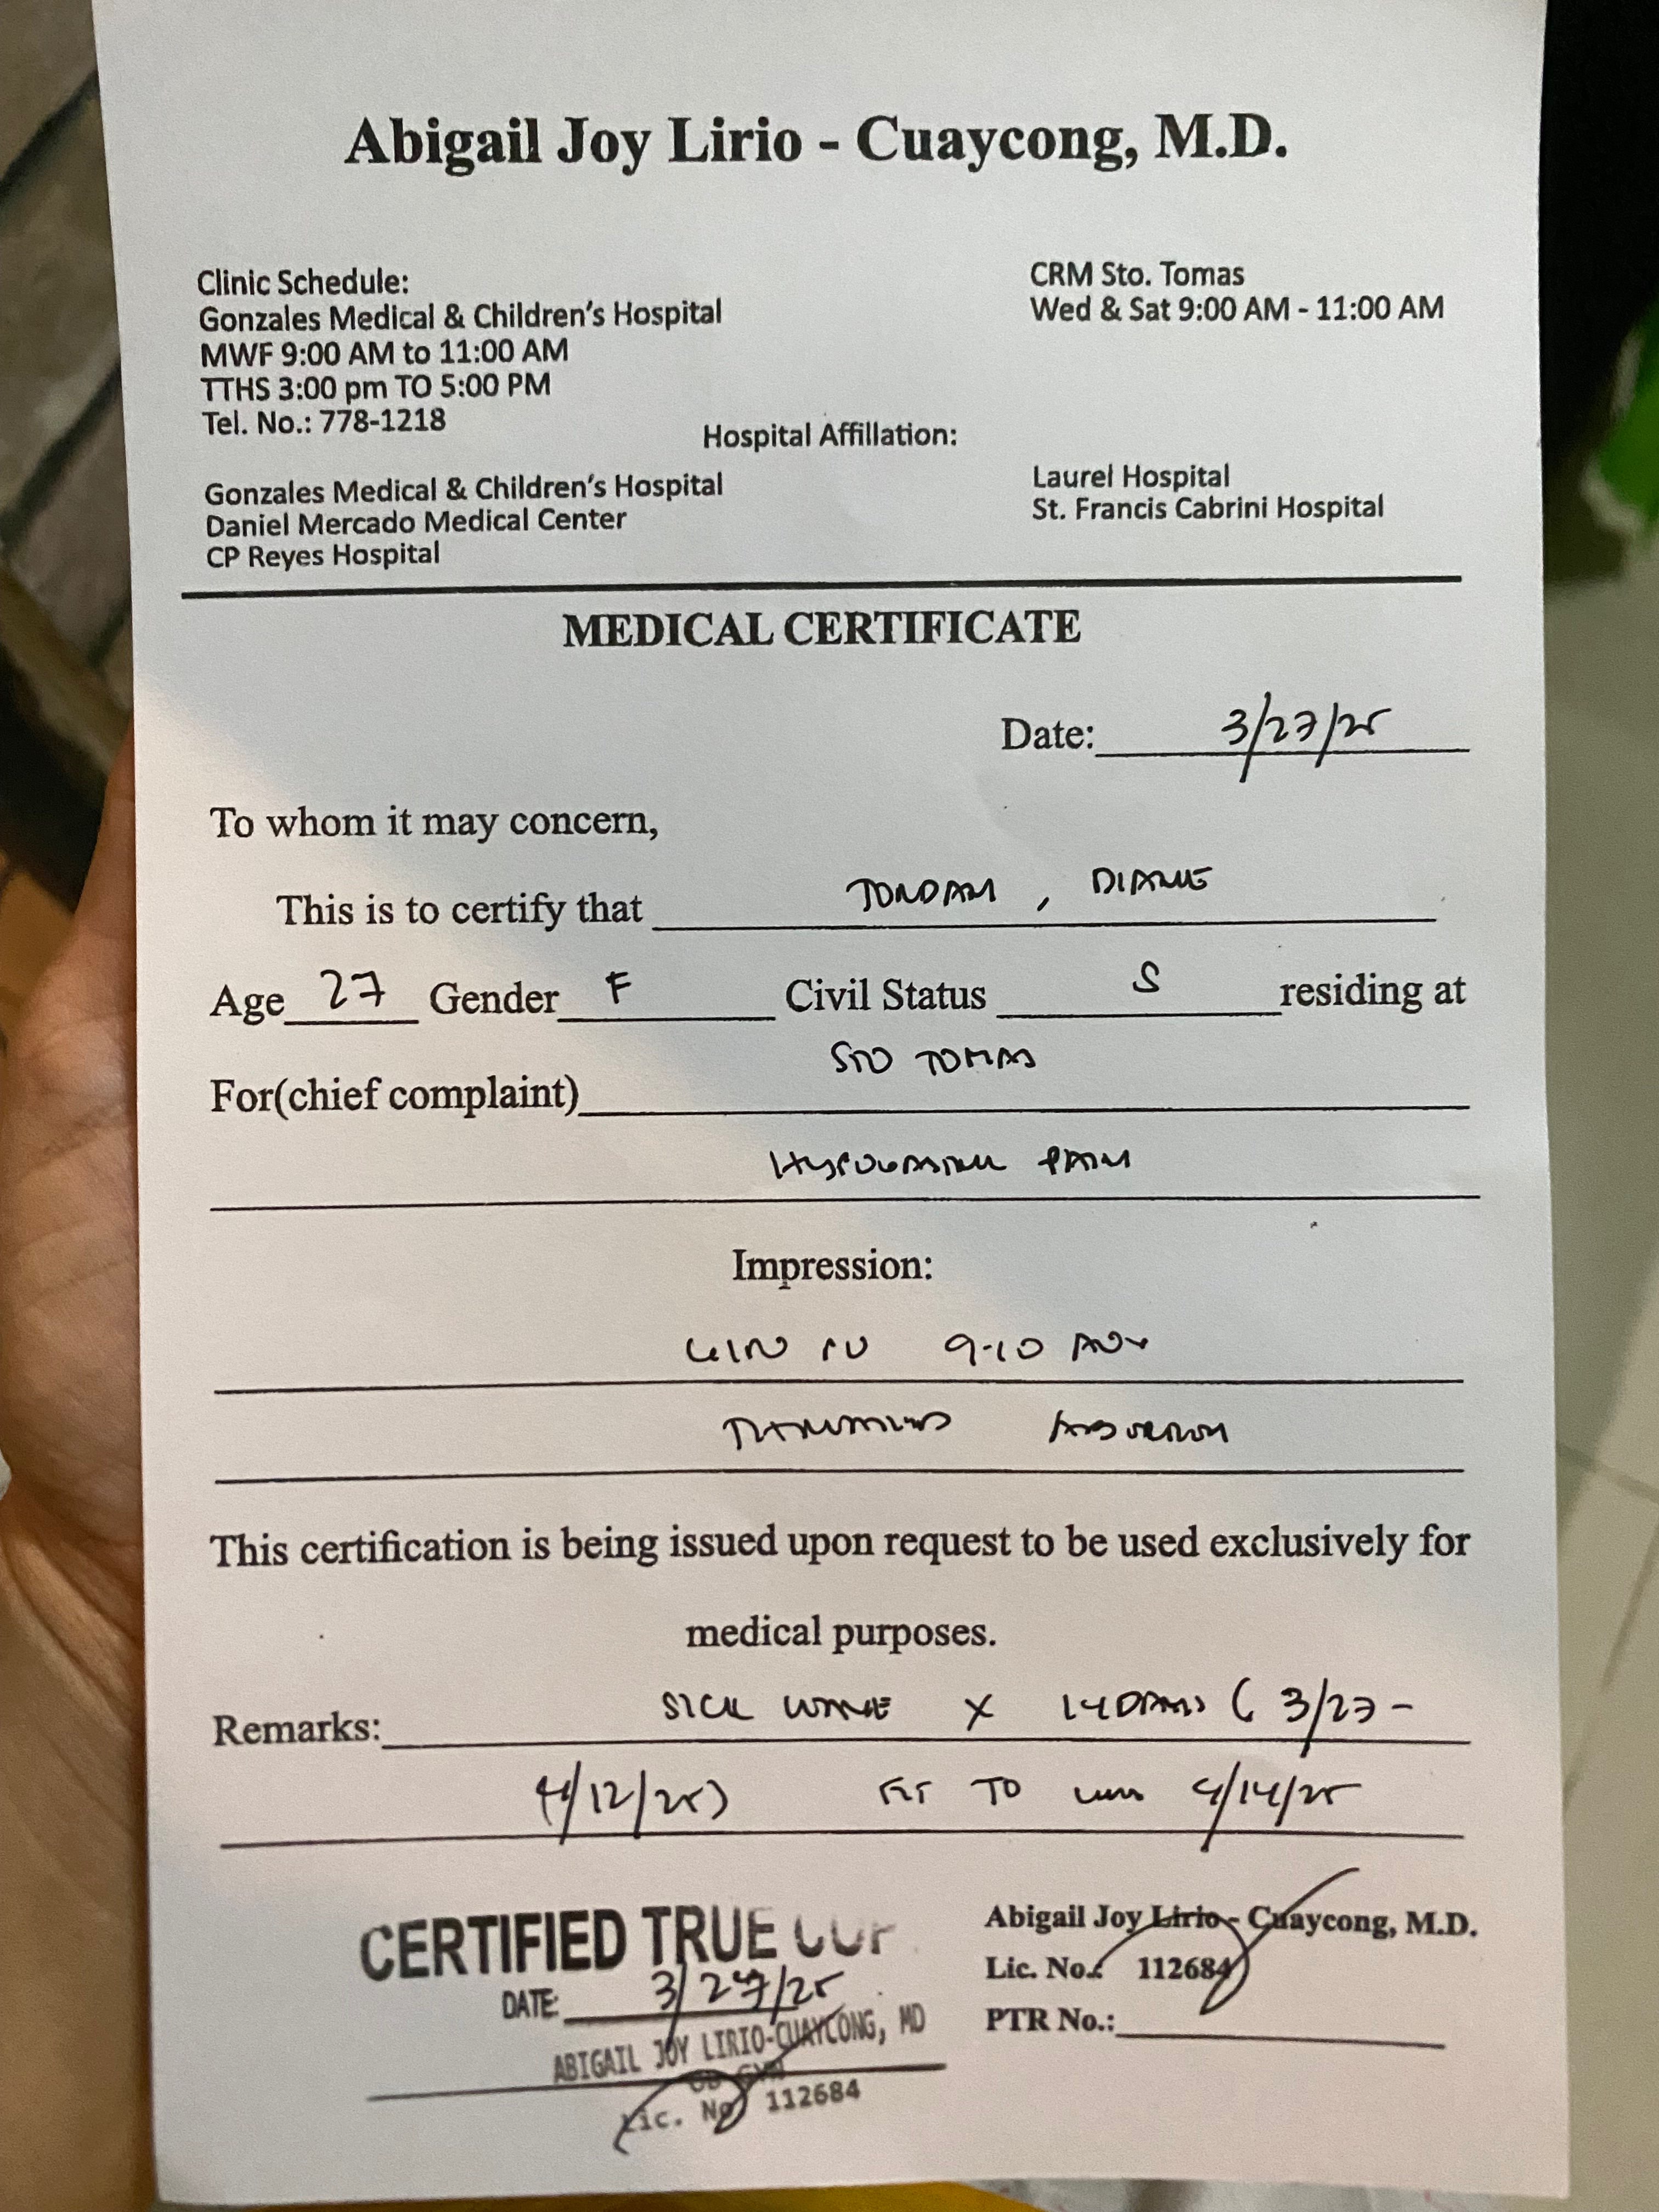 Abigail Joy Lirio - Cuaycong, M.D.
Clinic Schedule:
Gonzales Medical & Children's Hospital
MWF 9:00 AM to 11:00 AM
TTHS 3:00 pm TO 5:00 PM
Tel. No.: 778-1218
CRM Sto. Tomas
Wed & Sat 9:00 AM - 11:00 AM
Hospital Affillation:
Gonzales Medical & Children's Hospital
Daniel Mercado Medical Center
CP Reyes Hospital
Laurel Hospital
St. Francis Cabrini Hospital
MEDICAL CERTIFICATE
Date: 3/27/25
To whom it may concern,
This is to certify that , DIANE
Age 27 Gender F Civil Status S residing at
STO TOMAS
For(chief complaint)
PAIN
Impression:
9-10
This certification is being issued upon request to be used exclusively for
medical purposes.
Remarks: SICK X 14 DAYS ( 3/27 -
4/12/25) FIT TO 4/14/25
CERTIFIED TRUE
DATE: 3/27/25
ABIGAIL JOY LIRIO-CUAYCONG, MD
OB GYN
Lic. No 112684
Abigail Joy Lirio - Cuaycong, M.D.
Lic. No.: 112684
PTR No.: